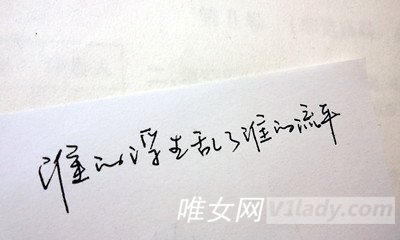 谁的浮生乱了谁的流年
唯女网 V1lady.com